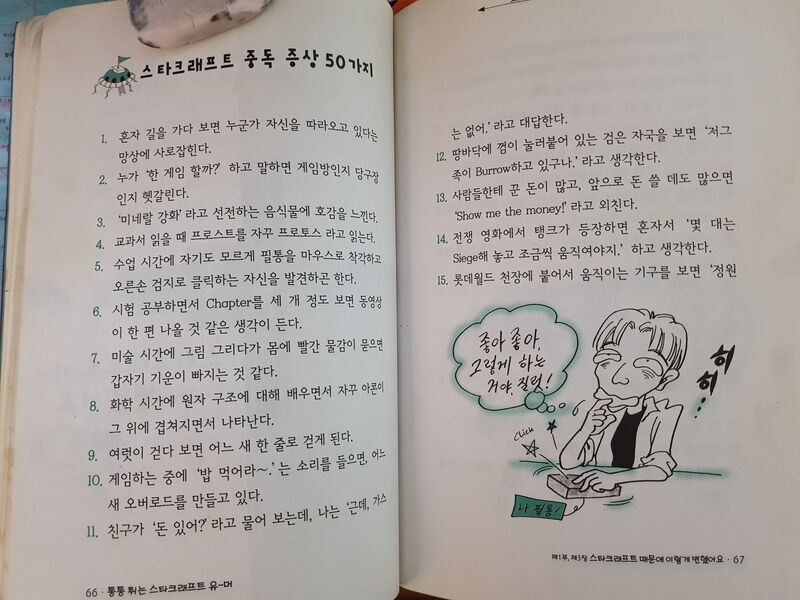 스타크래프트 중독 증상 50가지
1. 혼자 길을 가다 보면 누군가 자신을 따라오고 있다는
망상에 사로잡힌다.
2. 누가 '한 게임 할까?' 하고 말하면 게임방인지 당구장
인지 헷갈린다.
3. '미네랄 강화'라고 선전하는 음식물에 호감을 느낀다.
4. 교과서 읽을 때 프로스트를 자꾸 프로토스 라고 읽는다.
5. 수업 시간에 자기도 모르게 필통을 마우스로 착각하고
오른손 검지로 클릭하는 자신을 발견하곤 한다.
6. 시험 공부하면서 Chapter를 세 개 정도 보면 동영상
이 한 편 나올 것 같은 생각이 든다.
7. 미술 시간에 그림 그리다가 몸에 빨간 물감이 묻으면
갑자기 기운이 빠지는 것 같다.
8. 화학 시간에 원자 구조에 대해 배우면서 자꾸 아콘이
그 위에 겹쳐지면서 나타난다.
9. 여럿이 걷다 보면 어느 새 한 줄로 걷게 된다.
10. 게임하는 중에 '밥 먹어라~.'는 소리를 들으면, 어느
새 오버로드를 만들고 있다.
11. 친구가 '돈 있어?' 라고 물어 보는데, 나는 '근데, 가스
66 · 통통 튀는 스타크래프트 유-머
는 없어.' 라고 대답한다.
12. 땅바닥에 껌이 눌러붙어 있는 검은 자국을 보면 '저그
족이 Burrow하고 있구나.' 라고 생각한다.
13. 사람들한테 꾼 돈이 많고, 앞으로 돈 쓸 데도 많으면
'Show me the money!' 라고 외친다.
14. 전쟁 영화에서 탱크가 등장하면 혼자서 '몇 대는
Siege해 놓고 조금씩 움직여야지.' 하고 생각한다.
15. 롯데월드 천장에 붙어서 움직이는 기구를 보면 '정원
좋아 좋아,
그렇게 하는
거야. 질럿!
히
히...
Click
나 필통!
제1부, 제3장 스타크래프트 때문에 이렇게 변했어요 · 67